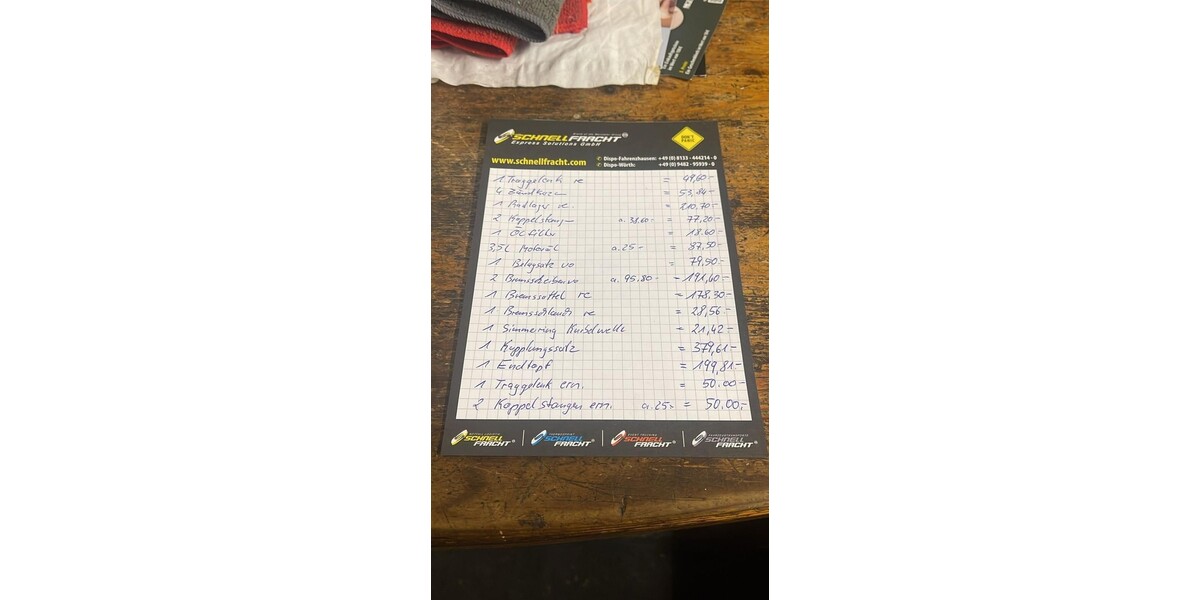 SCHNELLFRACHT
Express Solutions GmbH
DON'T PANIC
www.schnellfracht.com
Dispo-Fahrenzhausen: +49 (0) 8133 - 444214 - 0
Dispo-Wörth: +49 (0) 9482 - 95939 - 0
1 Traggelenk re = 49,60-
4 Zündkerzen = 53,84-
1 Radlager re. = 210,70-
2 Koppelstang a. 38,60- = 77,20-
1 Ölfilter = 18.60-
3,5L Motoröl a. 25- = 87,50-
1 Belagsatz vo = 79,50-
2 Bremsscheiben vo a. 95.80- = 191,60-
1 Bremssattel re = 178.30-
1 Bremsschlauch re = 28,56-
1 Simmering Kurbelwelle = 21,42-
1 Kupplungssatz = 379,61-
1 Endtopf = 199,81-
1 Traggelenk ern. = 50.00-
2 Koppelstangen ern. a. 25- = 50.00,-
SCHNELL FRACHT
SCHNELL FRACHT
SCHNELL FRACHT
SCHNELL FRACHT